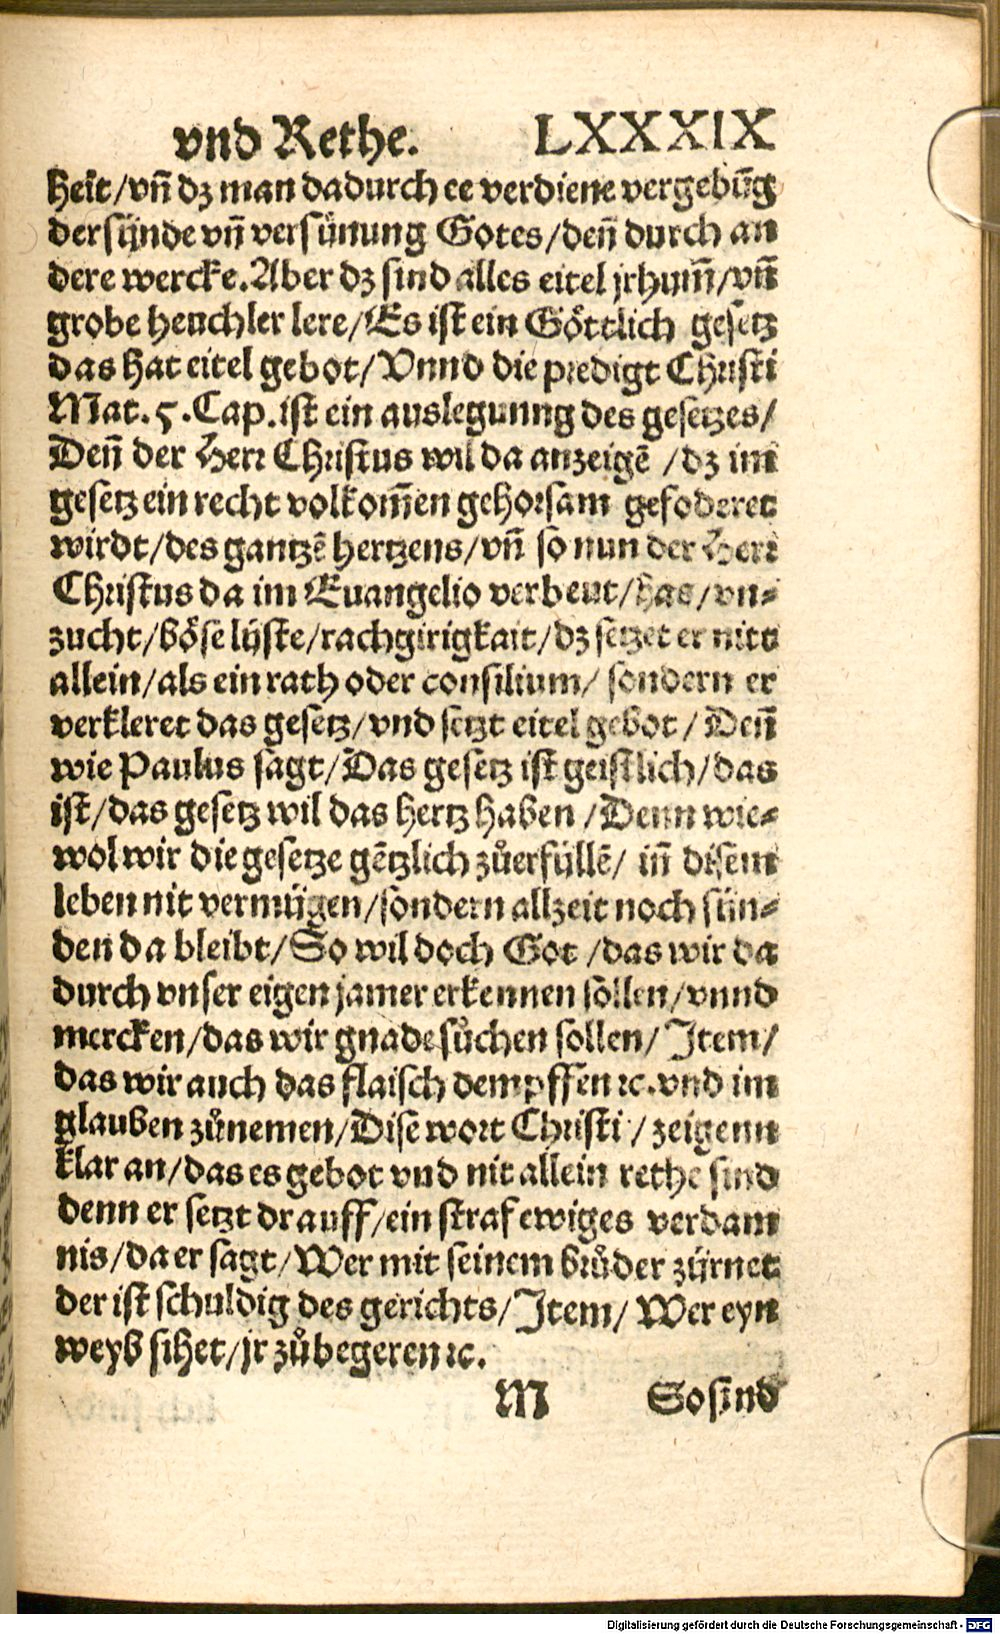 vnd Rethe. LXXXIX
heit/vñ dz man dadurch ee verdiene vergebūg
der sünde vñ versünung Gotes/deñ durch an
dere wercke. Aber dz sind alles eitel jrhum̃/vñ
grobe heuchler lere/Es ist ein Göttlich gesetz
das hat eitel gebot/Vnnd die predigt Christi
Mat. 5. Cap. ist ein auslegunng des gesetzes/
Deñ der Herr Christus wil da anzeigē /dz im
gesetz ein recht volkom̃en gehorsam gefoderet
wirdt/des gantzē hertzens/vñ so nun der Herr
Christus da im Euangelio verbeut/has/vn⸗
zucht/böse lüste/rachgirigkait/dz setzet er nitt
allein/als ein rath oder consilium/ sondern er
verkleret das gesetz/vnd setzt eitel gebot/ Deñ
wie Paulus sagt/Das gesetz ist geistlich/das
ist/das gesetz wil das hertz haben /Denn wie⸗
wol wir die gesetze gētzlich zůerfüllē/ iñ disem
leben nit vermügen/sondern allzeit noch sün⸗
den da bleibt/So wil doch Got /das wir da
durch vnser eigen jamer erkennen söllen/vnnd
mercken/das wir gnade sůchen sollen/ Item/
das wir auch das flaisch dempffen ꝛc. vnd im
glauben zůnemen/Dise wort Christi / zeigenn
klar an/das es gebot vnd nit allein rethe sind
denn er setzt drauff/ein straf ewiges verdam
nis/da er sagt/Wer mit seinem brůder zürnet
der ist schuldig des gerichts/Item/ Wer eyn
weyb sihet/jr zůbegeren ꝛc.
M So sind
Digitalisierung gefördert durch die Deutsche Forschungsgemeinschaft - DFG